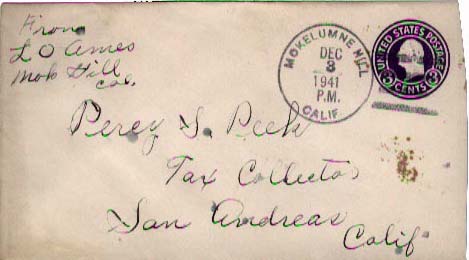 From
L O Ames
Mok Hill
Cal.
MOKELUMNE HILL
DEC
3
1941
P.M.
CALIF.
UNITED STATES POSTAGE
3 CENTS 3
Percy S. Peek
Tax Collector
San Andreas
Calif